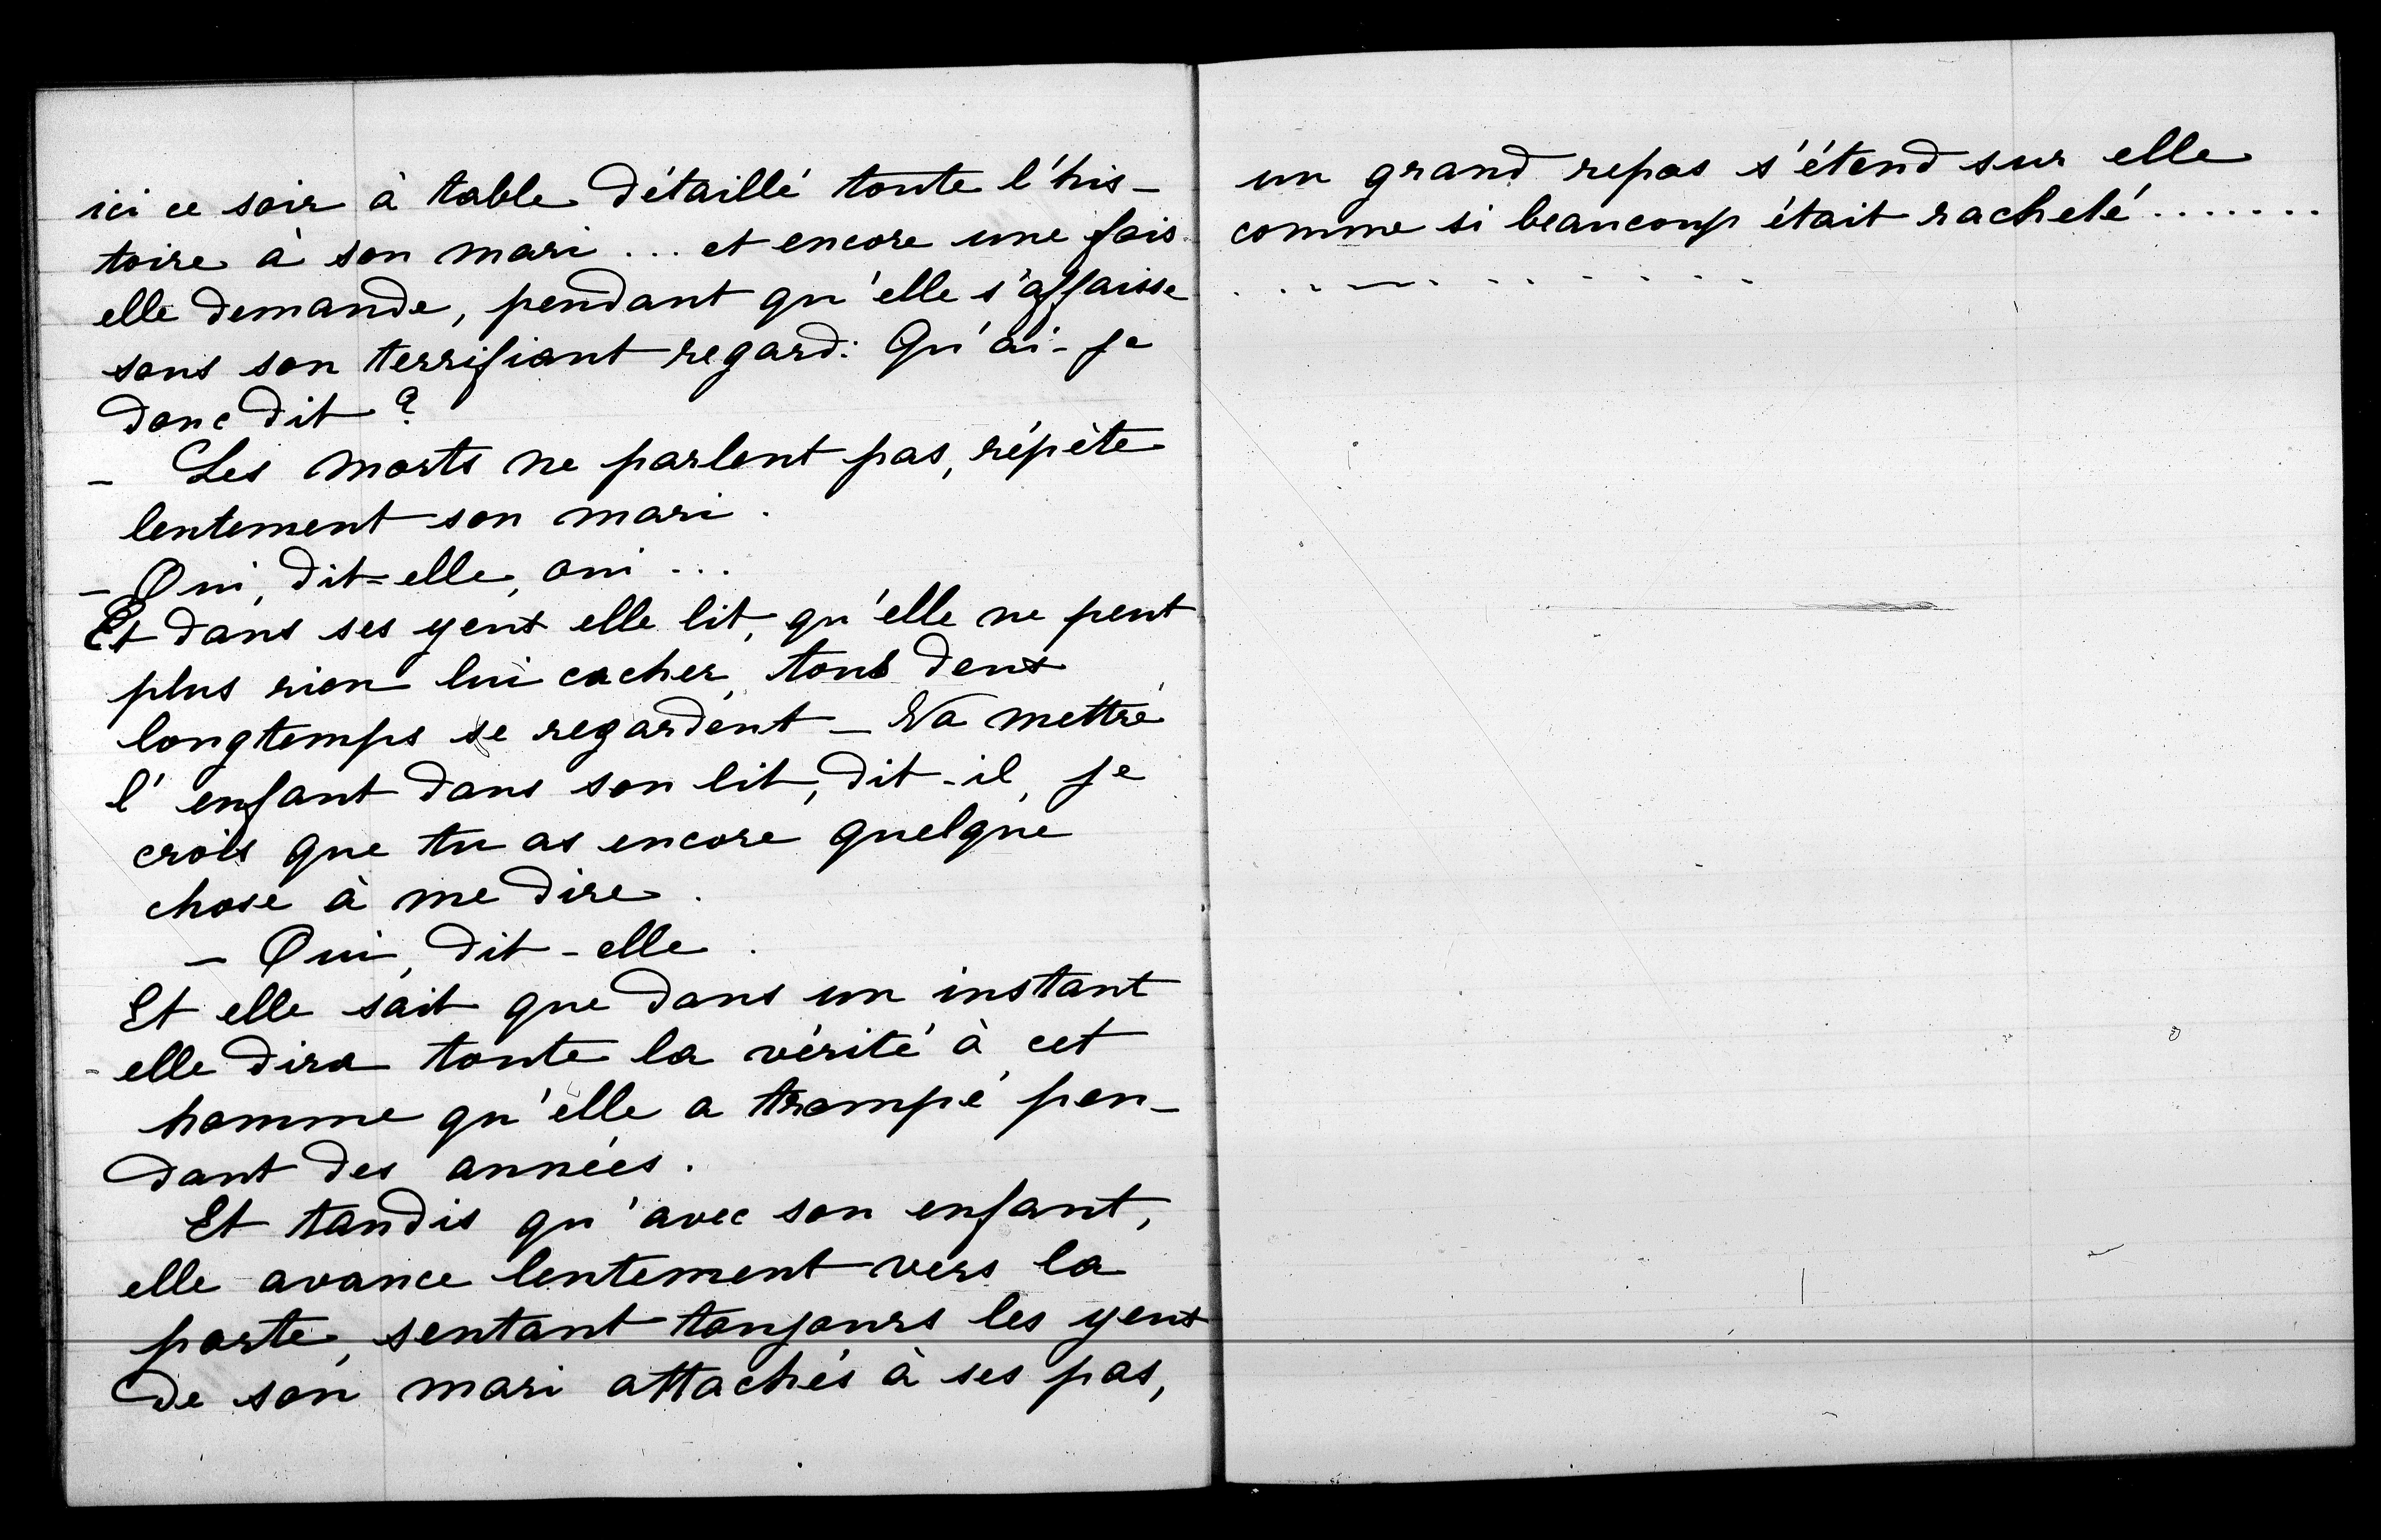 ici ce soir à table détaillé toute l'his-
toire à son mari ... et encore une fois
elle demande, pendant qu'elle s'affaisse
sous son terrifiant regard: Qu'ai-je
donc dit ?
- Les morts ne parlent pas, répète
lentement son mari.
- Oui, dit-elle, oui ...
Et dans ses yeux elle lit, qu'elle ne peut
plus rien lui cacher, tous deux
longtemps se regardent - Va mettre
l'enfant dans son lit, dit-il, je
crois que tu as encore quelque
chose à me dire.
- Oui, dit-elle.
Et elle sait que dans un instant
elle dira toute la vérité à cet
homme qu'elle a trompé pen-
dant des années.
Et tandis qu'avec son enfant,
elle avance lentement vers la
porte, sentant toujours les yeux
de son mari attachés à ses pas,
un grand repos s'étend sur elle
comme si beaucoup était racheté .......
. . . - - . - - - - - -